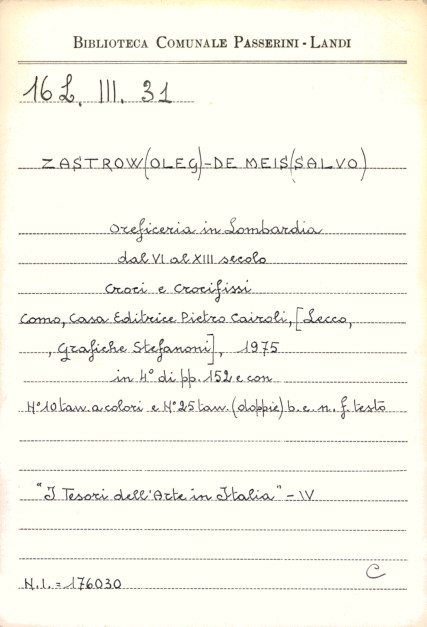 BIBLIOTECA COMUNALE PASSERINI - LANDI
16 L. III. 31
ZASTROW (OLEG) - DE MEIS (SALVO)
Oreficeria in Lombardia
dal VI al XIII secolo
Croci e Crocifissi
Como, Casa Editrice Pietro Cairoli, [Lecco,
, Grafiche Stefanoni], 1975
in 4° di pp. 152 e con
N° 10 tav. a colori e N° 25 tav. (doppie) b. e. n. f. testo
"I Tesori dell'Arte in Italia" - IV
C
N.I. = 176030